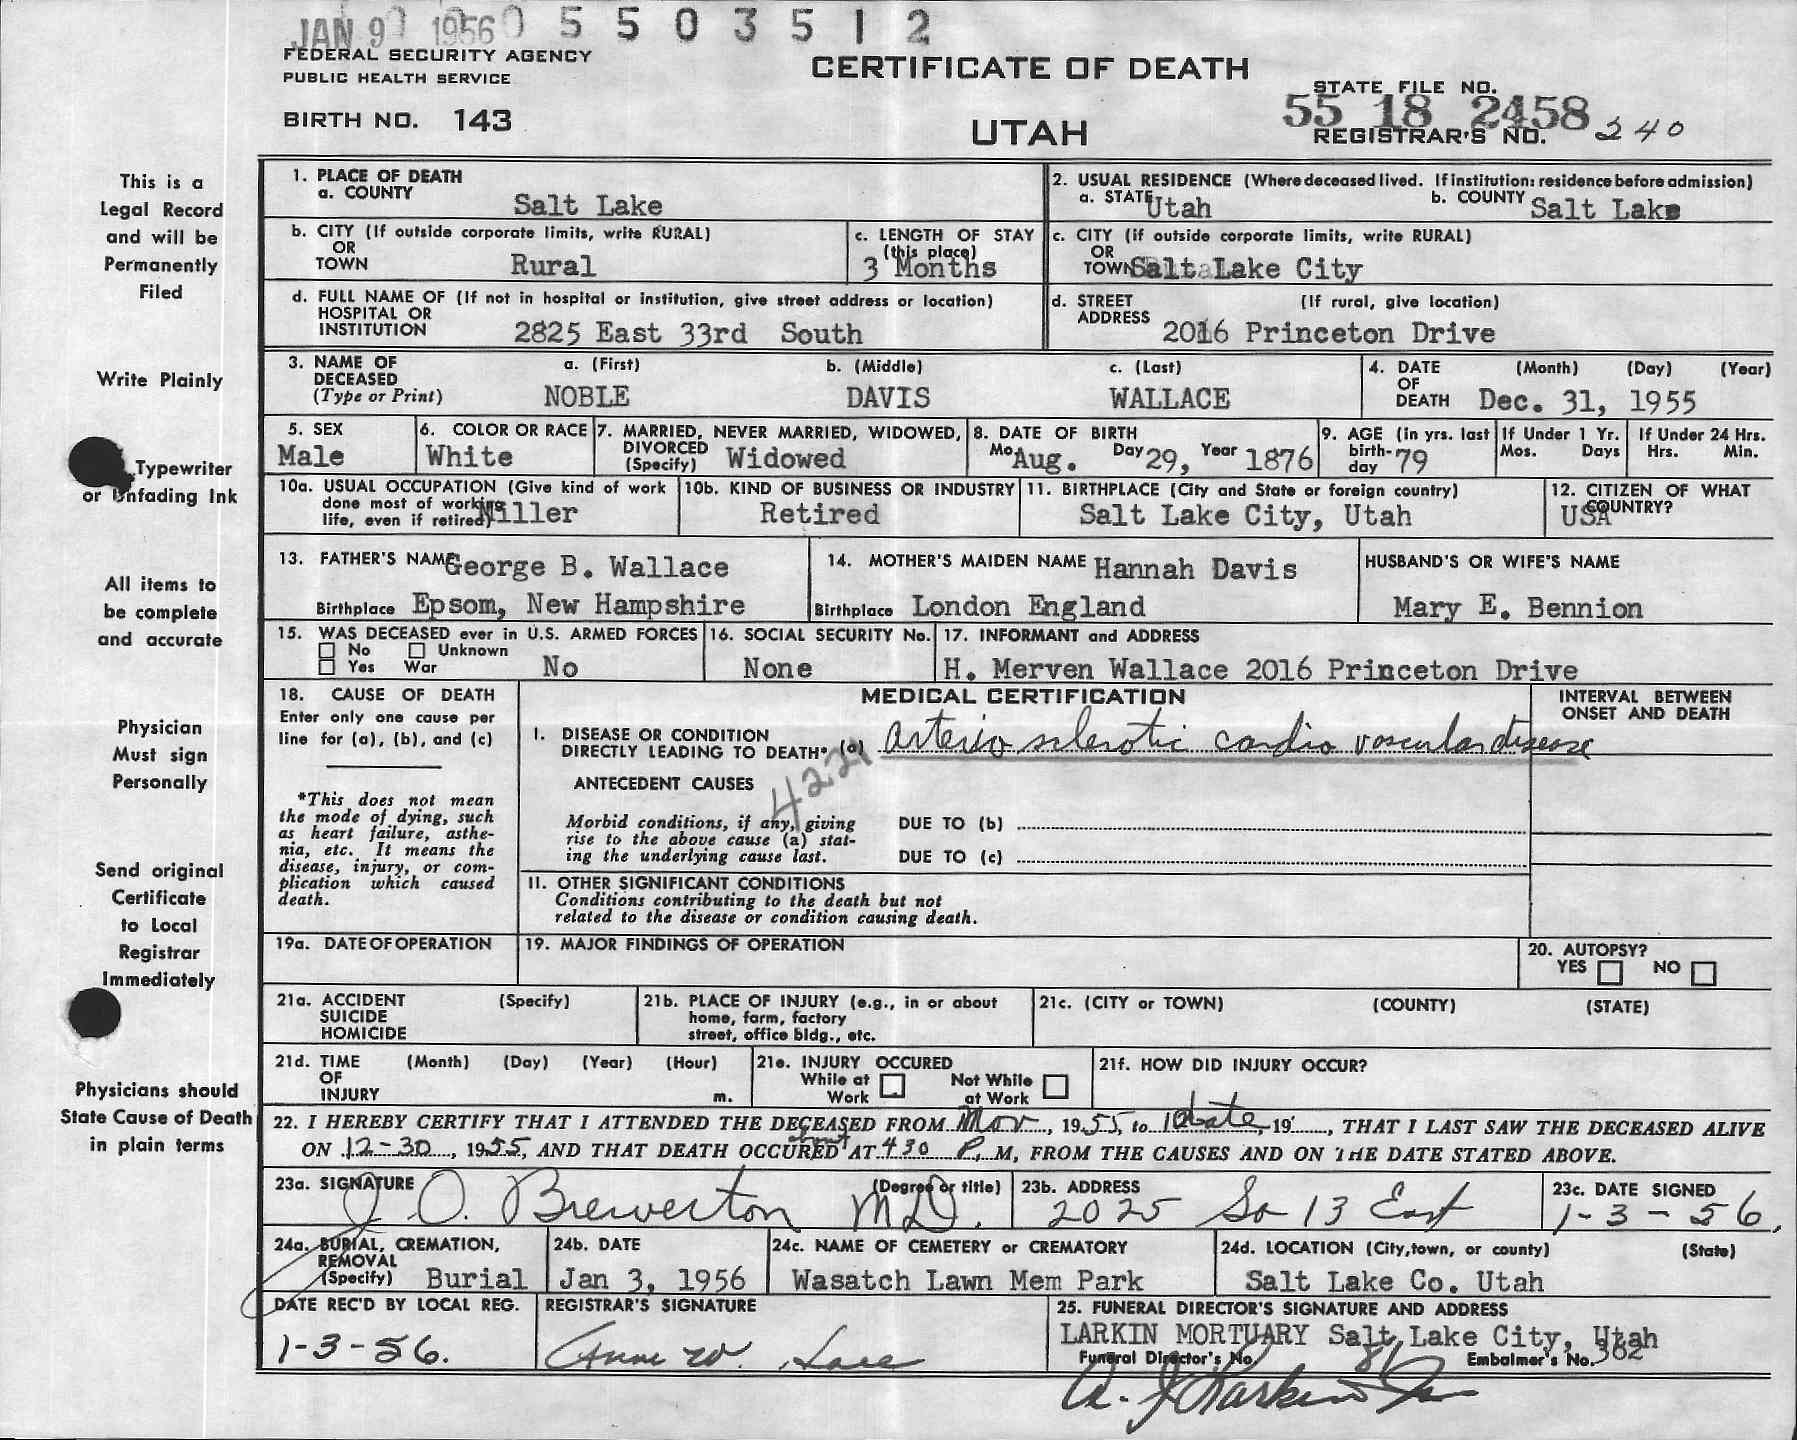 JAN 9 1956 0 5 5 0 3 5 1 2
FEDERAL SECURITY AGENCY
PUBLIC HEALTH SERVICE
CERTIFICATE OF DEATH
STATE FILE NO.
55 18 2458
BIRTH NO. 143
UTAH
REGISTRAR'S NO. 240
This is a
Legal Record
and will be
Permanently
Filed
Write Plainly
Typewriter
or Unfading Ink
All items to
be complete
and accurate
Physician
Must sign
Personally
Send original
Certificate
to Local
Registrar
Immediately
Physicians should
State Cause of Death
in plain terms
1. PLACE OF DEATH
a. COUNTY Salt Lake
2. USUAL RESIDENCE (Where deceased lived. If institution: residence before admission)
a. STATE Utah b. COUNTY Salt Lake
b. CITY (If outside corporate limits, write RURAL)
OR
TOWN Rural
c. LENGTH OF STAY
(this place)
3 Months
c. CITY (if outside corporate limits, write RURAL)
OR
TOWN Salt Lake City
d. FULL NAME OF (If not in hospital or institution, give street address or location)
HOSPITAL OR
INSTITUTION 2825 East 33rd South
d. STREET (If rural, give location)
ADDRESS 2016 Princeton Drive
3. NAME OF a. (First) b. (Middle) c. (Last)
DECEASED
(Type or Print) NOBLE DAVIS WALLACE
4. DATE (Month) (Day) (Year)
OF
DEATH Dec. 31, 1955
5. SEX
Male
6. COLOR OR RACE
White
7. MARRIED, NEVER MARRIED, WIDOWED,
DIVORCED
(Specify) Widowed
8. DATE OF BIRTH
Mo Aug. Day 29, Year 1876
9. AGE (in yrs. last
birth-
day 79
If Under 1 Yr.
Mos. Days
If Under 24 Hrs.
Hrs. Min.
10a. USUAL OCCUPATION (Give kind of work
done most of working
life, even if retired) Miller
10b. KIND OF BUSINESS OR INDUSTRY
Retired
11. BIRTHPLACE (City and State or foreign country)
Salt Lake City, Utah
12. CITIZEN OF WHAT
COUNTRY?
USA
13. FATHER'S NAME George B. Wallace
Birthplace Epsom, New Hampshire
14. MOTHER'S MAIDEN NAME Hannah Davis
Birthplace London England
HUSBAND'S OR WIFE'S NAME
Mary E. Bennion
15. WAS DECEASED ever in U.S. ARMED FORCES
No Unknown
Yes War No
16. SOCIAL SECURITY No.
None
17. INFORMANT and ADDRESS
H. Merven Wallace 2016 Princeton Drive
18. CAUSE OF DEATH
Enter only one cause per
line for (a), (b), and (c)
*This does not mean
the mode of dying, such
as heart failure, asthe-
nia, etc. It means the
disease, injury, or com-
plication which caused
death.
MEDICAL CERTIFICATION
INTERVAL BETWEEN
ONSET AND DEATH
I. DISEASE OR CONDITION
DIRECTLY LEADING TO DEATH* (a) arterio sclerotic cardio vascular disease
4221
ANTECEDENT CAUSES
Morbid conditions, if any, giving
rise to the above cause (a) stat-
ing the underlying cause last.
DUE TO (b)
DUE TO (c)
II. OTHER SIGNIFICANT CONDITIONS
Conditions contributing to the death but not
related to the disease or condition causing death.
19a. DATE OF OPERATION
19. MAJOR FINDINGS OF OPERATION
20. AUTOPSY?
YES NO
21a. ACCIDENT (Specify)
SUICIDE
HOMICIDE
21b. PLACE OF INJURY (e.g., in or about
home, farm, factory
street, office bldg., etc.
21c. (CITY or TOWN) (COUNTY) (STATE)
21d. TIME (Month) (Day) (Year) (Hour)
OF
INJURY m.
21e. INJURY OCCURED
While at Not While
Work at Work
21f. HOW DID INJURY OCCUR?
22. I HEREBY CERTIFY THAT I ATTENDED THE DECEASED FROM Nov, 1955, to date, 19 , THAT I LAST SAW THE DECEASED ALIVE
ON 12-30, 1955, AND THAT DEATH OCCURED about AT 430 P. M, FROM THE CAUSES AND ON THE DATE STATED ABOVE.
23a. SIGNATURE (Degree or title)
J. O. Brewerton M.D.
23b. ADDRESS
2025 So 13 East
23c. DATE SIGNED
1-3-56,
24a. BURIAL, CREMATION,
REMOVAL
(Specify) Burial
24b. DATE
Jan 3, 1956
24c. NAME OF CEMETERY or CREMATORY
Wasatch Lawn Mem Park
24d. LOCATION (City, town, or county) (State)
Salt Lake Co. Utah
DATE REC'D BY LOCAL REG.
1-3-56.
REGISTRAR'S SIGNATURE
Anne W.
25. FUNERAL DIRECTOR'S SIGNATURE AND ADDRESS
LARKIN MORTUARY Salt Lake City, Utah
Funeral Director's No. 81 Embalmer's No. 382
A. J. Larkin Jr